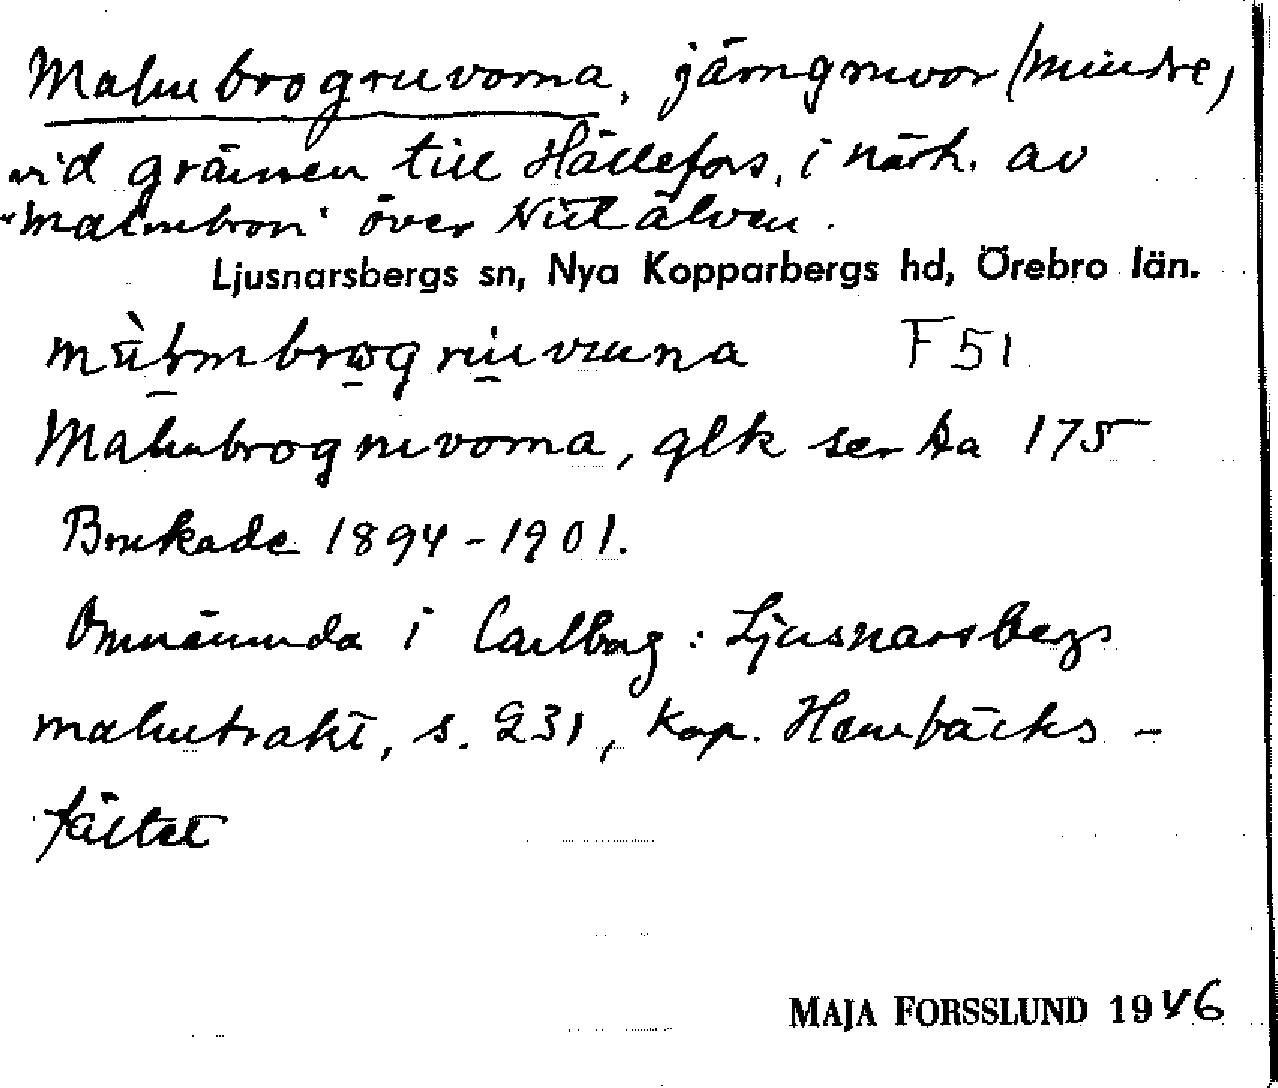 Malmbrogruvorna, järngruvor (mindre)
vid gränsen till Hällefors, i närh. av
"Malmbron" över Nittälven.
Ljusnarsbergs sn, Nya Kopparbergs hd, Örebro län.
F 51
Malmbrogruvorna, glk ser ka 175
Brukade 1894-1901.
Omnämnda i Carlborg: Ljusnarsbergs
malmtrakt, s. 231, kap. Hembäcks-
fältet
MAJA FORSSLUND 1946